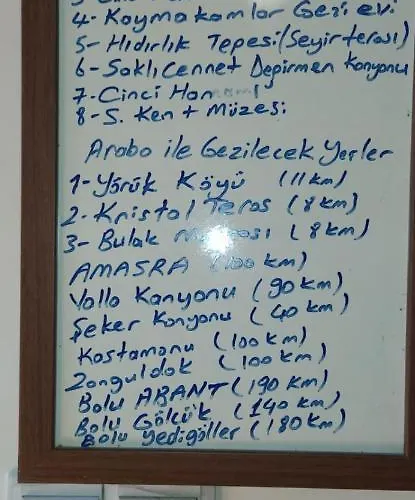 4- Kaymakamlar Gezi evi
5- Hıdırlık Tepesi (Seyir terası)
6- Saklı Cennet Değirmen Kanyonu
7- Cinci Han
8- S. Kent Müzesi
Araba ile Gezilecek Yerler
1- Yörük Köyü (11 km)
2- Kristal Teras (8 km)
3- Bulak (8 km)
AMASRA (100 km)
Valla Kanyonu (90 km)
Şeker Kanyonu (40 km)
Kastamonu (100 km)
Zonguldak (100 km)
Bolu ABANT (190 km)
Bolu Gölcük (140 km)
Bolu Yedigöller (180 km)